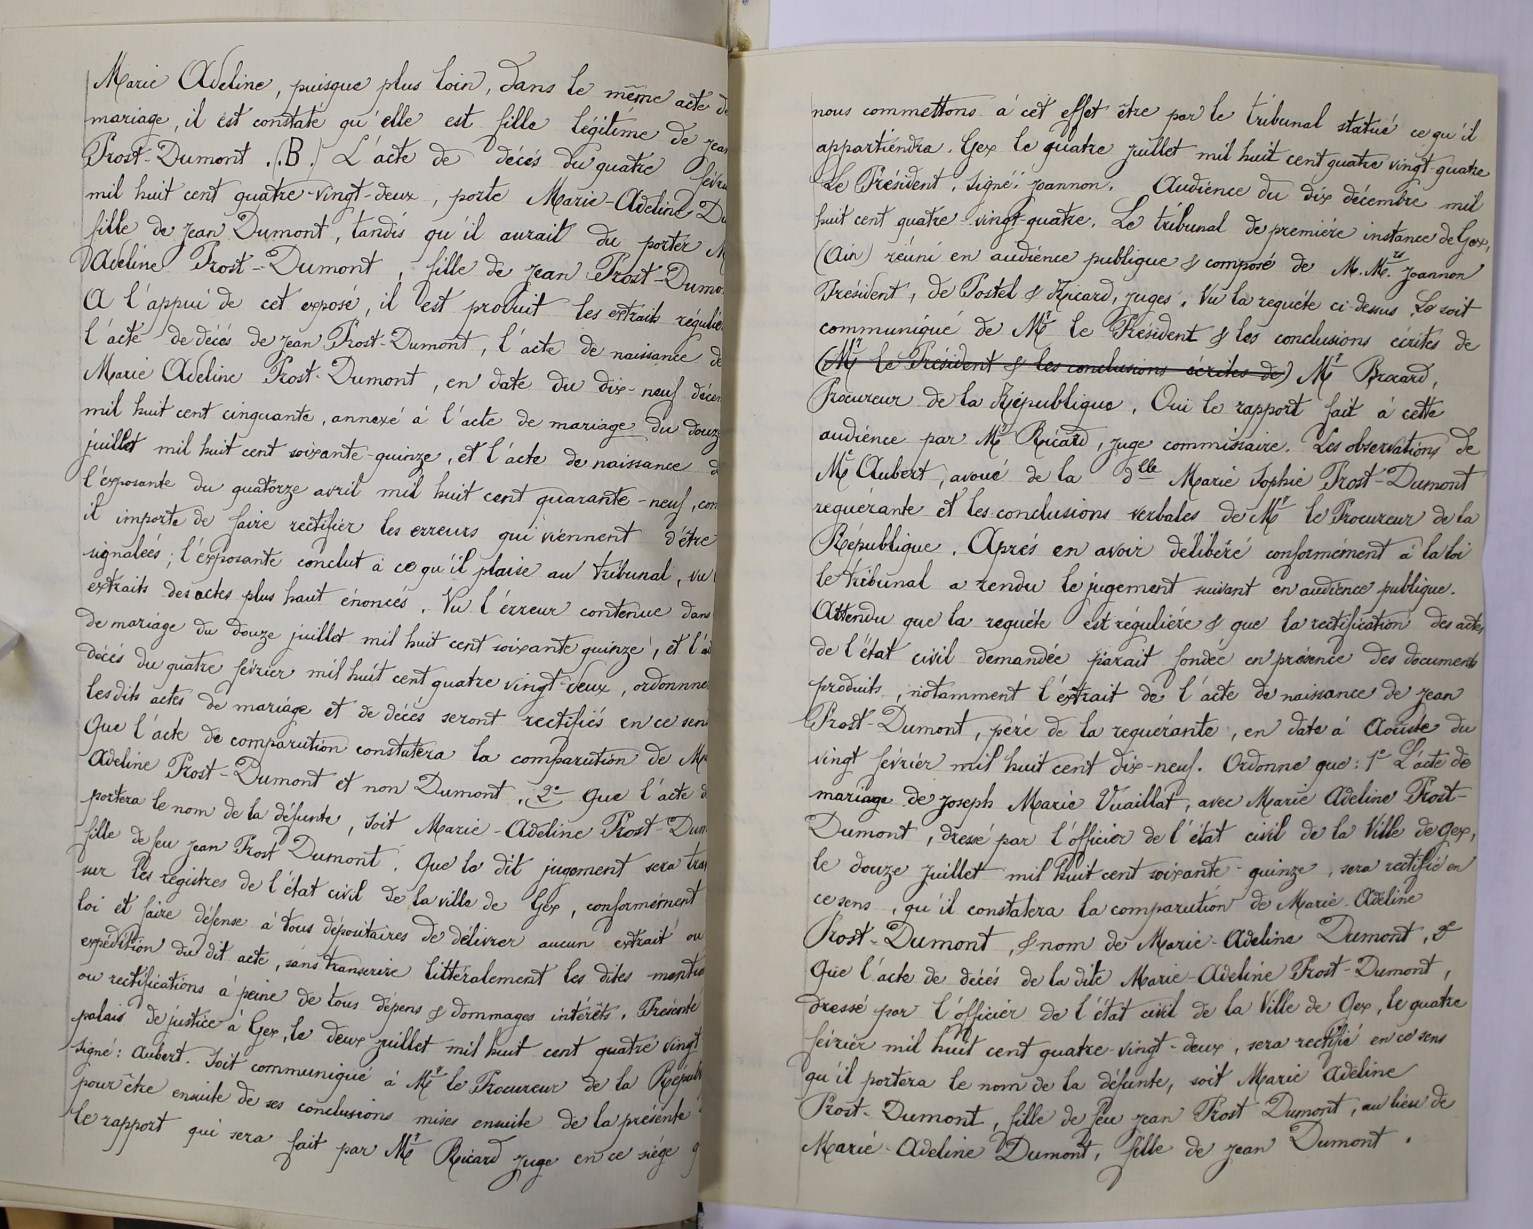 Marie Adeline, puisque plus loin, dans le même acte de
mariage, il est constaté qu'elle est fille légitime de Jean
Prost-Dumont. (B.) L'acte de décès du quatre
mil huit cent quatre-vingt-deux, porte Marie-Adeline
fille de Jean Dumont, tandis qu'il aurait du porter
Adeline Prost-Dumont, fille de Jean Prost-Dumo
A l'appui de cet exposé, il est produit les extraits
l'acte de décès de Jean Prost-Dumont, l'acte de naissance de
Marie Adeline Prost-Dumont, en date du dix-neuf décem
mil huit cent cinquante, annexé à l'acte de mariage du douze
juillet mil huit cent soixante-quinze, et l'acte de naissance
l'exposante du quatorze avril mil huit cent quarante-neuf, com
il importe de faire rectifier les erreurs qui viennent d'être
signalées; l'exposante conclut à ce qu'il plaise au tribunal, vu
extraits des actes plus haut énoncés. Vu l'érreur contenue dans
de mariage du douze juillet mil huit cent soixante quinze, et l'
décès du quatre février mil huit cent quatre vingt-deux, ordonner
les dits actes de mariage et de décès seront rectifiés en ce sens
Que l'acte de comparution constatera la comparution de Ma
Adeline Prost-Dumont et non Dumont. 2° Que l'acte d
portera le nom de la défunte, soit Marie-Adeline Prost-Dum
fille de feu Jean Prost Dumont. Que le dit jugement sera tra
sur les régistres de l'état civil de la ville de Gex, conformément
loi et faire défense à tous dépositaires de délivrer aucun extrait ou
expédition du dit acte, sans transcrire littéralement les dites mentio
ou rectifications à peine de tous dépens & dommages intérêts. Présenté
palais de justice à Gex, le deux juillet mil huit cent quatre vingt
Signé: Aubert. Soit communiqué à Mr le Procureur de la Répub
pour être ensuite de ses conclusions mises ensuite de la présente
le rapport qui sera fait par Mr Ricard juge en ce siége q
nous commettons à cet effet être par le tribunal statué ce qu'il
appartiendra. Gex le quatre juillet mil huit cent quatre vingt-quatre
Le Président. Signé: Joannon. Audience du dix décembre mil
huit cent quatre-vingt-quatre. Le tribunal de première instance de Gex,
(Ain) réuni en audience publique & composé de M.M.rs Joannon
Président, de Postel & Ricard, juges. Vu la requéte ci-dessus. Le soit
communiqué de Mr le Président & les conclusions écrites de
(Mr le Président & les conclusions écrites de) Mr Brocard,
Procureur de la République. Oui le rapport fait à cette
audience par Mr Ricard, juge commissaire. Les observations de
Me Aubert, avoué de la Dlle Marie Sophie Prost-Dumont
requérante et les conclusions verbales de Mr le Procureur de la
République. Aprés en avoir délibéré conformément à la loi
le tribunal a rendu le jugement suivant en audience publique.
Attendu que la requéte est réguliére & que la rectification des actes
de l'état civil demandée parait fondée en présence des documents
produits, notamment l'extrait de l'acte de naissance de Jean
Prost-Dumont, pére de la requérante, en date à Aouste du
vingt février mil huit cent dix-neuf. Ordonne que: 1° L'acte de
mariage de Joseph Marie Vuaillat, avec Marie Adeline Prost-
Dumont, dressé par l'officier de l'état civil de la Ville de Gex,
le douze juillet mil huit cent soixante-quinze, sera rectifié en
ce sens, qu'il constatera la comparution de Marie-Adeline
Prost-Dumont, & nom de Marie-Adeline Dumont, 2°
Que l'acte de décés de la dite Marie-Adeline Prost-Dumont,
dressé par l'officier de l'état civil de la Ville de Gex, le quatre
février mil huit cent quatre-vingt-deux, sera rectifié en ce sens
qu'il portera le nom de la défunte, soit Marie Adeline
Prost-Dumont, fille de feu Jean Prost Dumont, au lieu de
Marie-Adeline Dumont, fille de Jean Dumont.